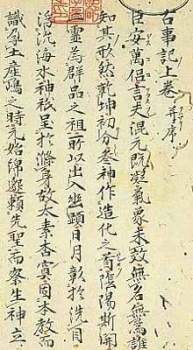 古事記上卷 并序
臣安萬侶言夫混元既凝氣象未效無名無為誰
知其形然乾坤初分参神作造化之首陰陽斯開
二霊為群品之祖所以出入幽顯日月彰於洗目
浮沈海水神祇呈於滌身故太素杳冥因本教而
識孕土産嶋之時元始綿邈頼先聖而察生神立